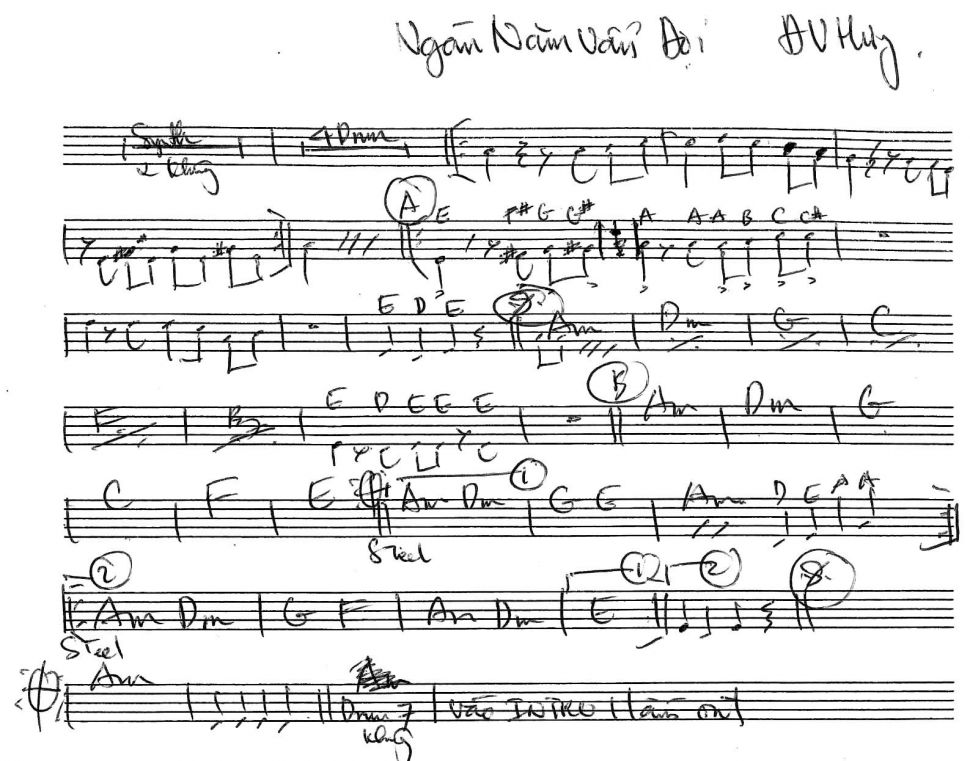 Ngàn Năm Vẫn Đợi ĐV Huy.
Synth 4 Drum
2 khung
A E F# G G# A A A B C C#
E D E Am Dm G C
F E D E E E B Am Dm G
C F E Am Dm 1 G E Am D E A A
Steel
2 Am Dm G F Am Dm E 1 2
Steel
Am
Drum 7 VÀO INTRO
khung